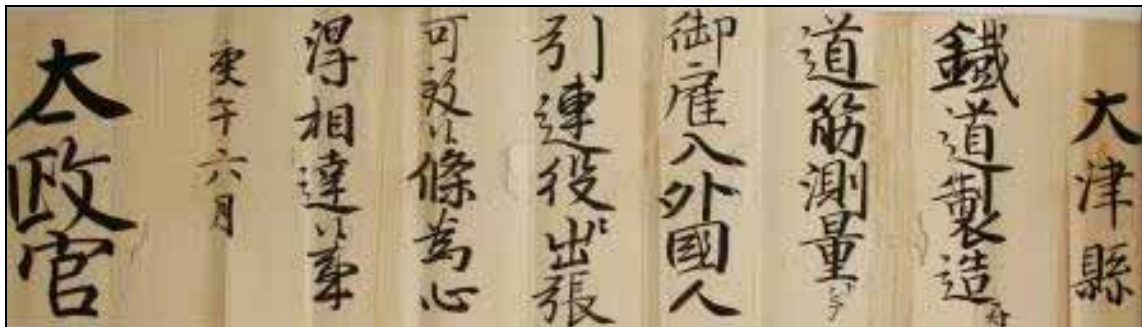 大津縣
鐵道製造ニ付
道筋測量トシテ
御雇入外國人
引連役々出張
可致候條為心
得相達候事
庚午六月
太政官